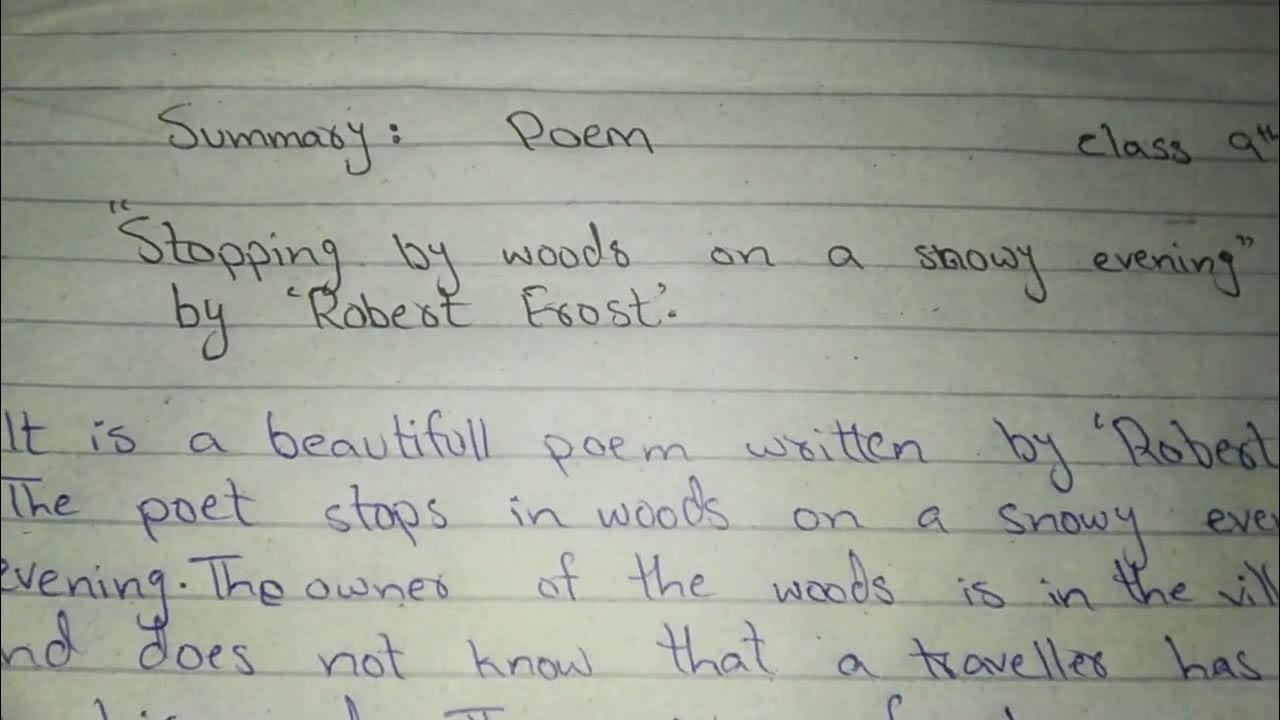 Summary: Poem class 9th
"Stopping by woods on a snowy evening"
by 'Robert Frost'.
It is a beautifull poem written by 'Robert
The poet stops in woods on a snowy eve
evening. The owner of the woods is in the vill
nd does not know that a traveller has